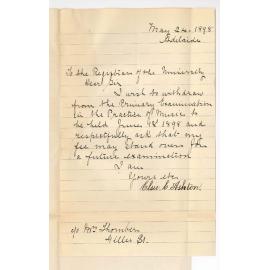 May 24. 1898
Adelaide
To the Registrar of the University
Dear Sir
I wish to withdraw
from the Primary Examination
in the Practice of Music to
be held June 9th 1898 and
respectfully ask that my
fee may stand over for
a future examination
I am
Yours etc
C. Ashton.
c/o Mrs Thornber
Gilles St.